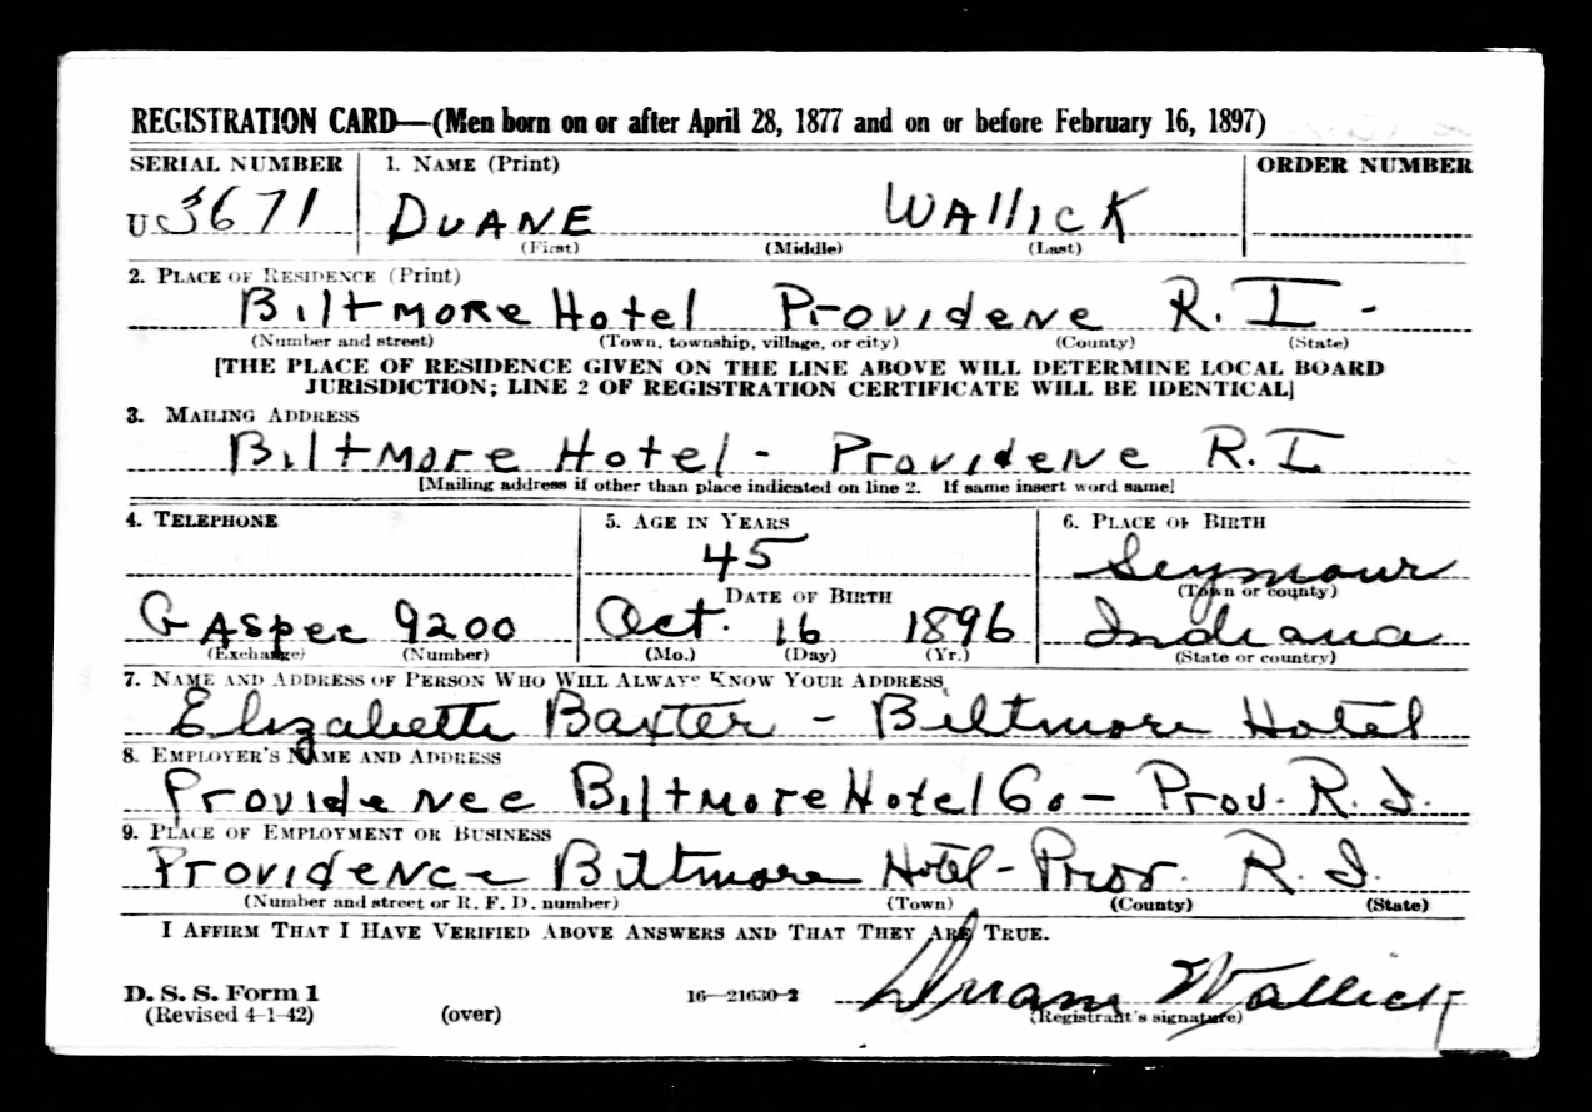 REGISTRATION CARD—(Men born on or after April 28, 1877 and on or before February 16, 1897)
SERIAL NUMBER 1. NAME (Print) ORDER NUMBER
U 3671 DUANE WAllICK
(First) (Middle) (Last)
2. PLACE OF RESIDENCE (Print)
BiltmoRe Hotel Providene R. I -
(Number and street) (Town, township, village, or city) (County) (State)
[THE PLACE OF RESIDENCE GIVEN ON THE LINE ABOVE WILL DETERMINE LOCAL BOARD
JURISDICTION; LINE 2 OF REGISTRATION CERTIFICATE WILL BE IDENTICAL]
3. MAILING ADDRESS
Biltmore Hotel - Providene R. I
[Mailing address if other than place indicated on line 2. If same insert word same]
4. TELEPHONE 5. AGE IN YEARS 6. PLACE OF BIRTH
45 Seymour
DATE OF BIRTH (Town or county)
GAspee 9200 Oct. 16 1896 Indiana
(Exchange) (Number) (Mo.) (Day) (Yr.) (State or country)
7. NAME AND ADDRESS OF PERSON WHO WILL ALWAYS KNOW YOUR ADDRESS
Elizabeth Baxter - Biltmore Hotel
8. EMPLOYER'S NAME AND ADDRESS
Providence Biltmore Hotel Co - Prov. R. I.
9. PLACE OF EMPLOYMENT OR BUSINESS
Providence Biltmore Hotel - Prov. R. I.
(Number and street or R. F. D. number) (Town) (County) (State)
I AFFIRM THAT I HAVE VERIFIED ABOVE ANSWERS AND THAT THEY ARE TRUE.
D. S. S. Form 1 16—21630-2 Duane Wallick
(Revised 4-1-42) (over) (Registrant's signature)